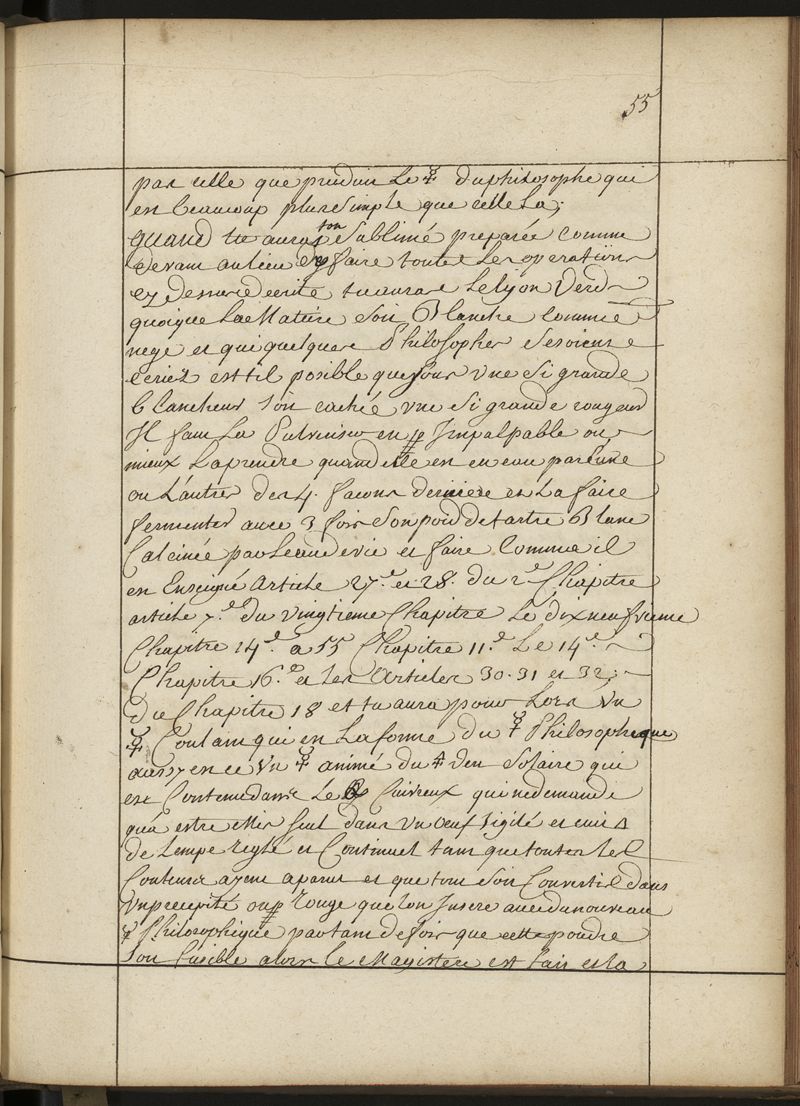 55
par celle que produit Le ☿ du philosophe qui
est beaucoup plus Simple que celle La;
quand tu auras ton Sublimé preparée comme
devant au lieu de faire toutes Les operations
cy dessus decrite tu auras Le lyon Verd
quoique La Matiere soit Blanche comme
nege et qui quelques Philosophes se soient
ecriez est til posible que sous une Si grande
blancheur soit cachée une Si grande rougeur
Il faut La Pulveriser en Impalpable ou
mieux La prendre quand elle est en eau par L'une
ou L'autres des 4. facons derniere et La faire
fermenter avec 3 fois son poid de tartre Blanc
Calcinée par Leau de vie et faire Comme il
est Enseigné Article 27.e et 28. du 2.e Chapitre
article 7.e du vingtieme Chapitre Le dixneufvieme
Chapitre 14.e a 55 Chapitre 11.e Le 14.e
Chapitre 16.e et Les Articles 30. 31 et 32.
du Chapitre 18 et tu aura pour Lors Un
☿ Coulant qui en La forme du ☿ Philosophique
aussy est ce Un ☿ animé du 🜍 d'or Solaire qui
est Contenu dans Le Cuivreux qui ne demande
qu'a estre Mis seul dans Un oeuf sigilé et cuit 🜂
de Lempe reglé et Continuel tant que toutes les
Couleurs ayent aparus et que tout soit Converti dans
Un precipité ou rouge que lon Insere avec du nouveau
☿ Philosophique par tant de fois que cette poudre
soit fusible alors le Magistere est fait et la